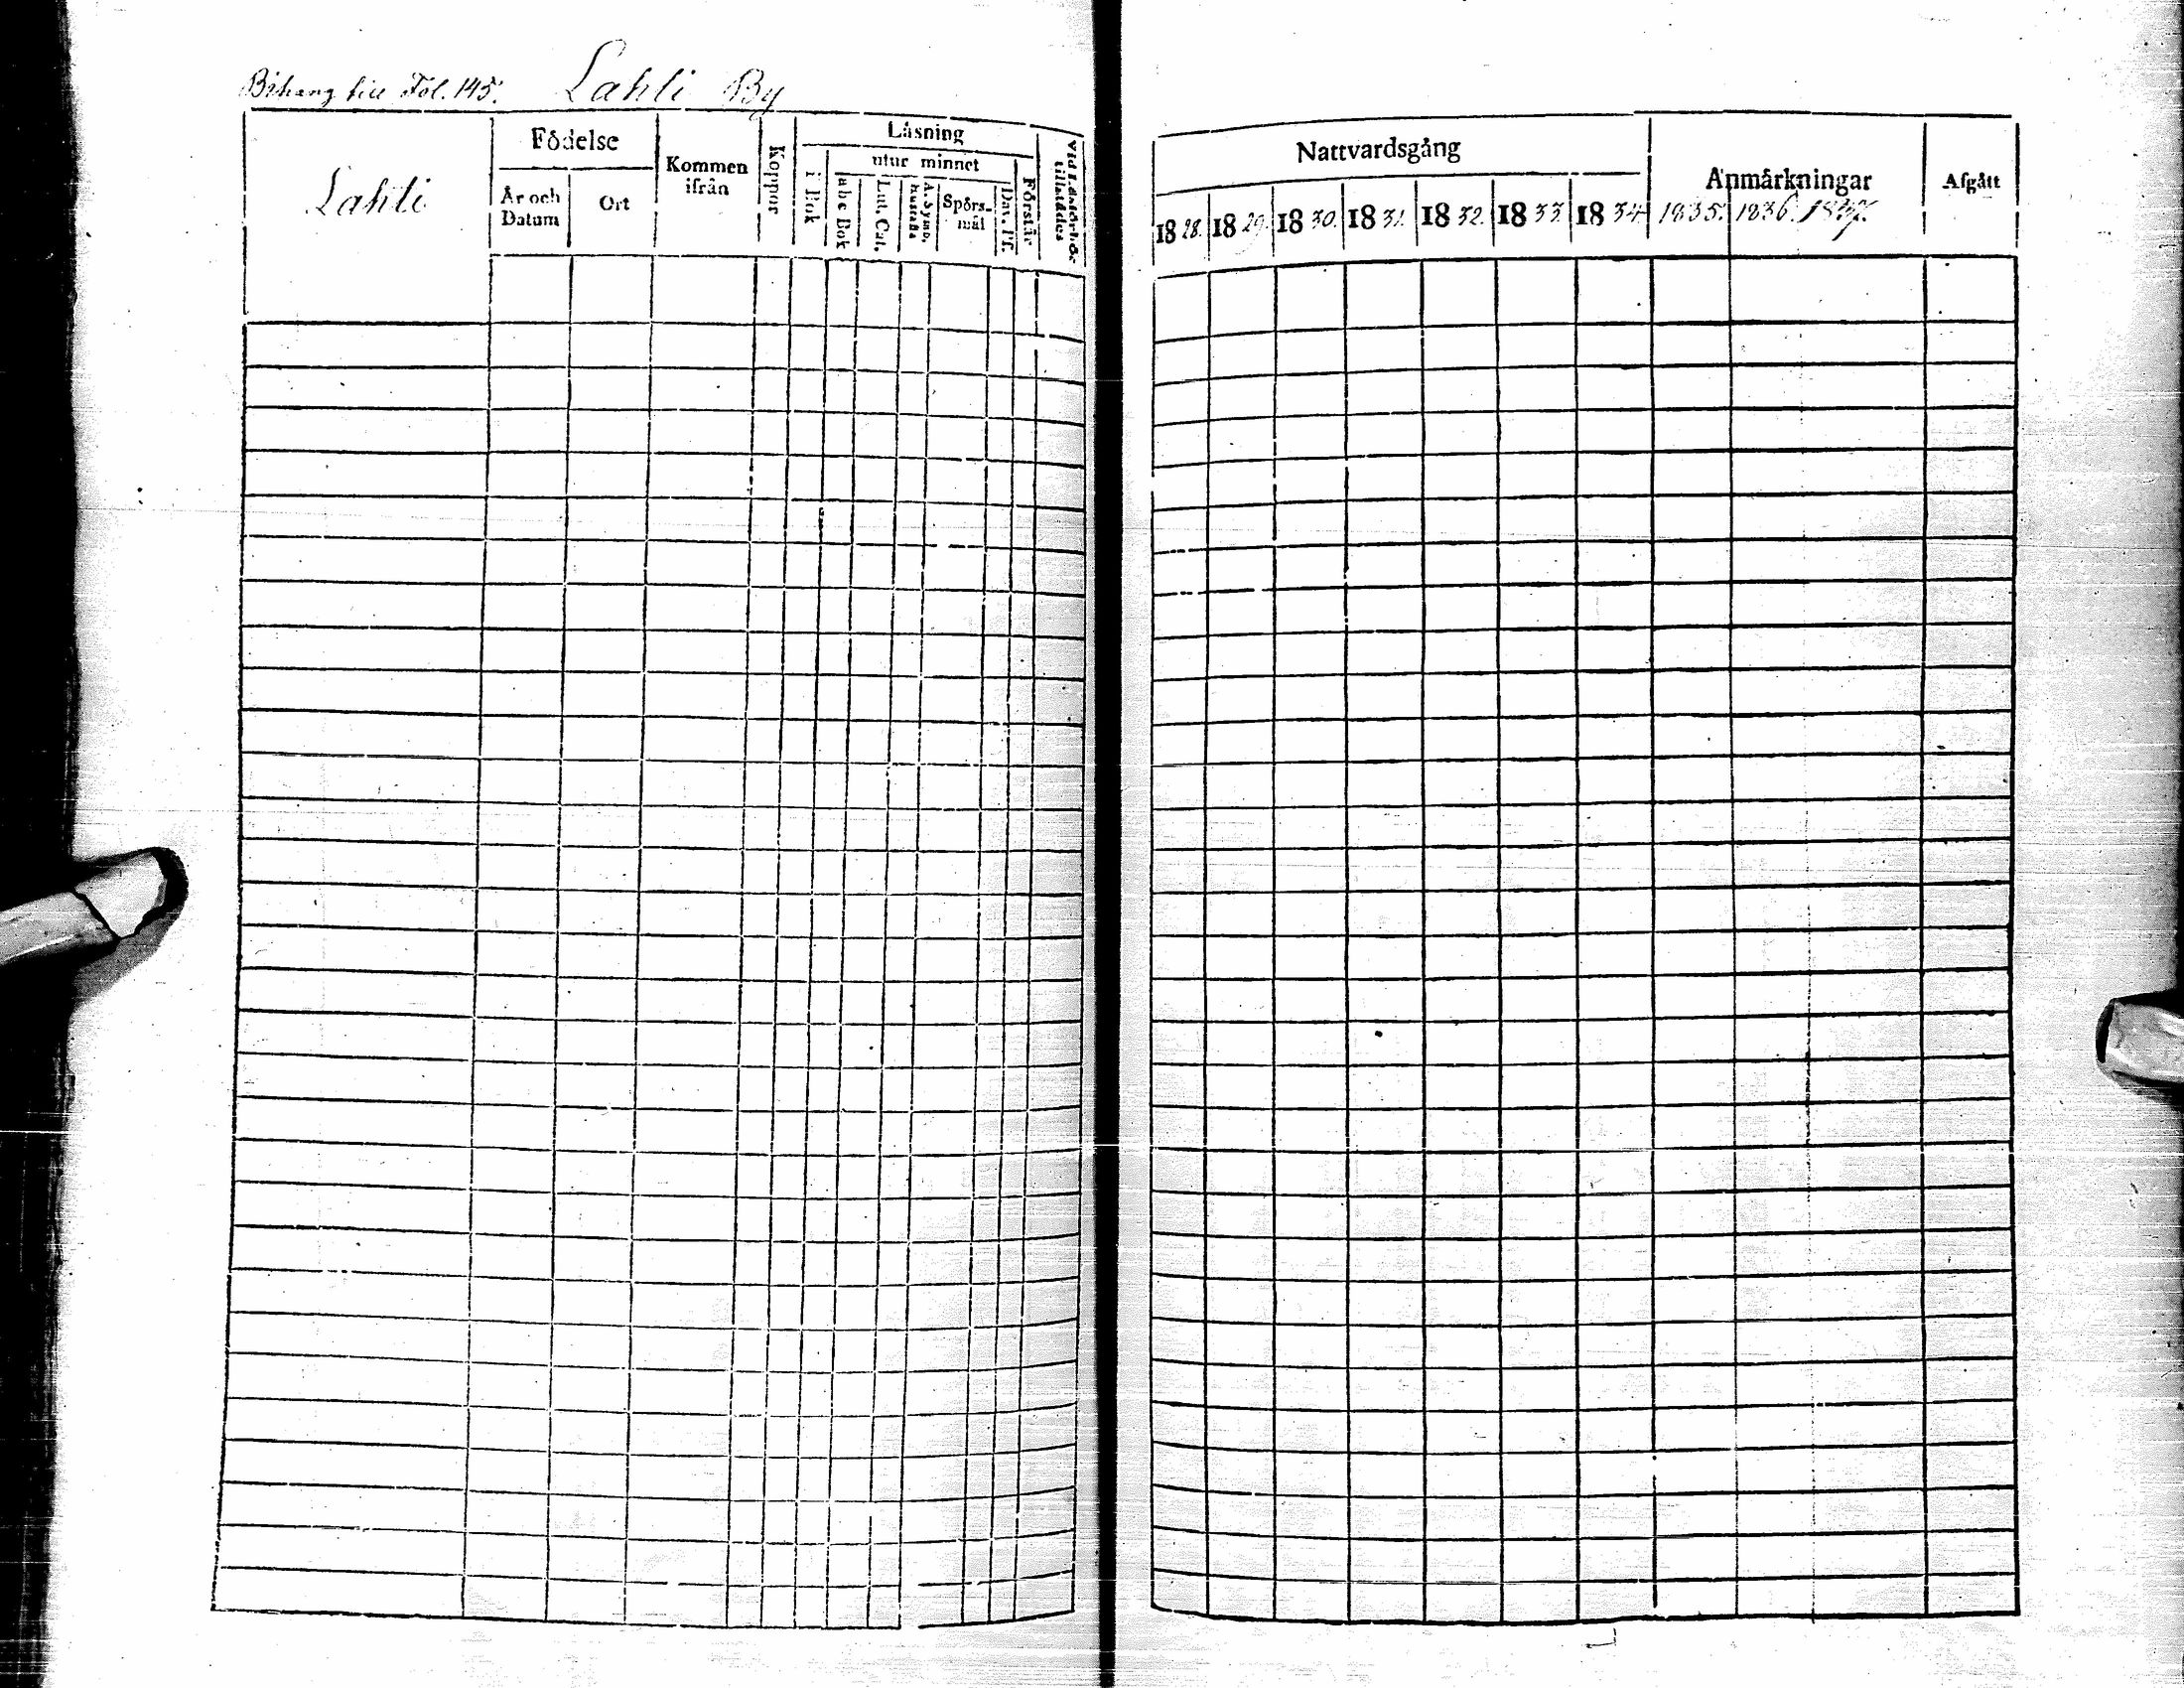 Bihang till Fol. 145. Lahti By
Lahti
Födelse
År och Datum
Ort
Kommen ifrån
Koppor
Läsning
i Bok
utur minnet
abc Bok
Lut. Cat.
A. Symb. hustafla
Spörs-mål
Dav. Ps.
Förstår
Vid Läsförhör tillstädes
Nattvardsgång
1828. 1829. 1830. 1831. 1832. 1833. 1834.
Anmärkningar
1835. 1836. 1837.
Afgått